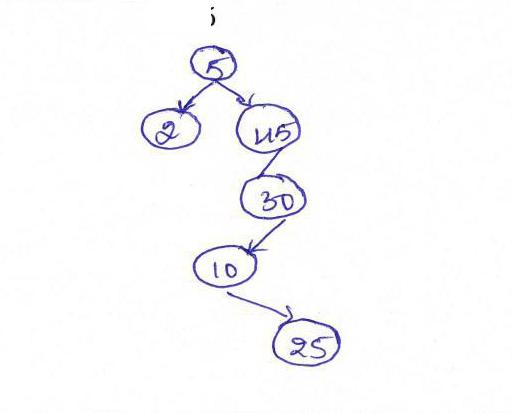 5
2 45
30
10
25